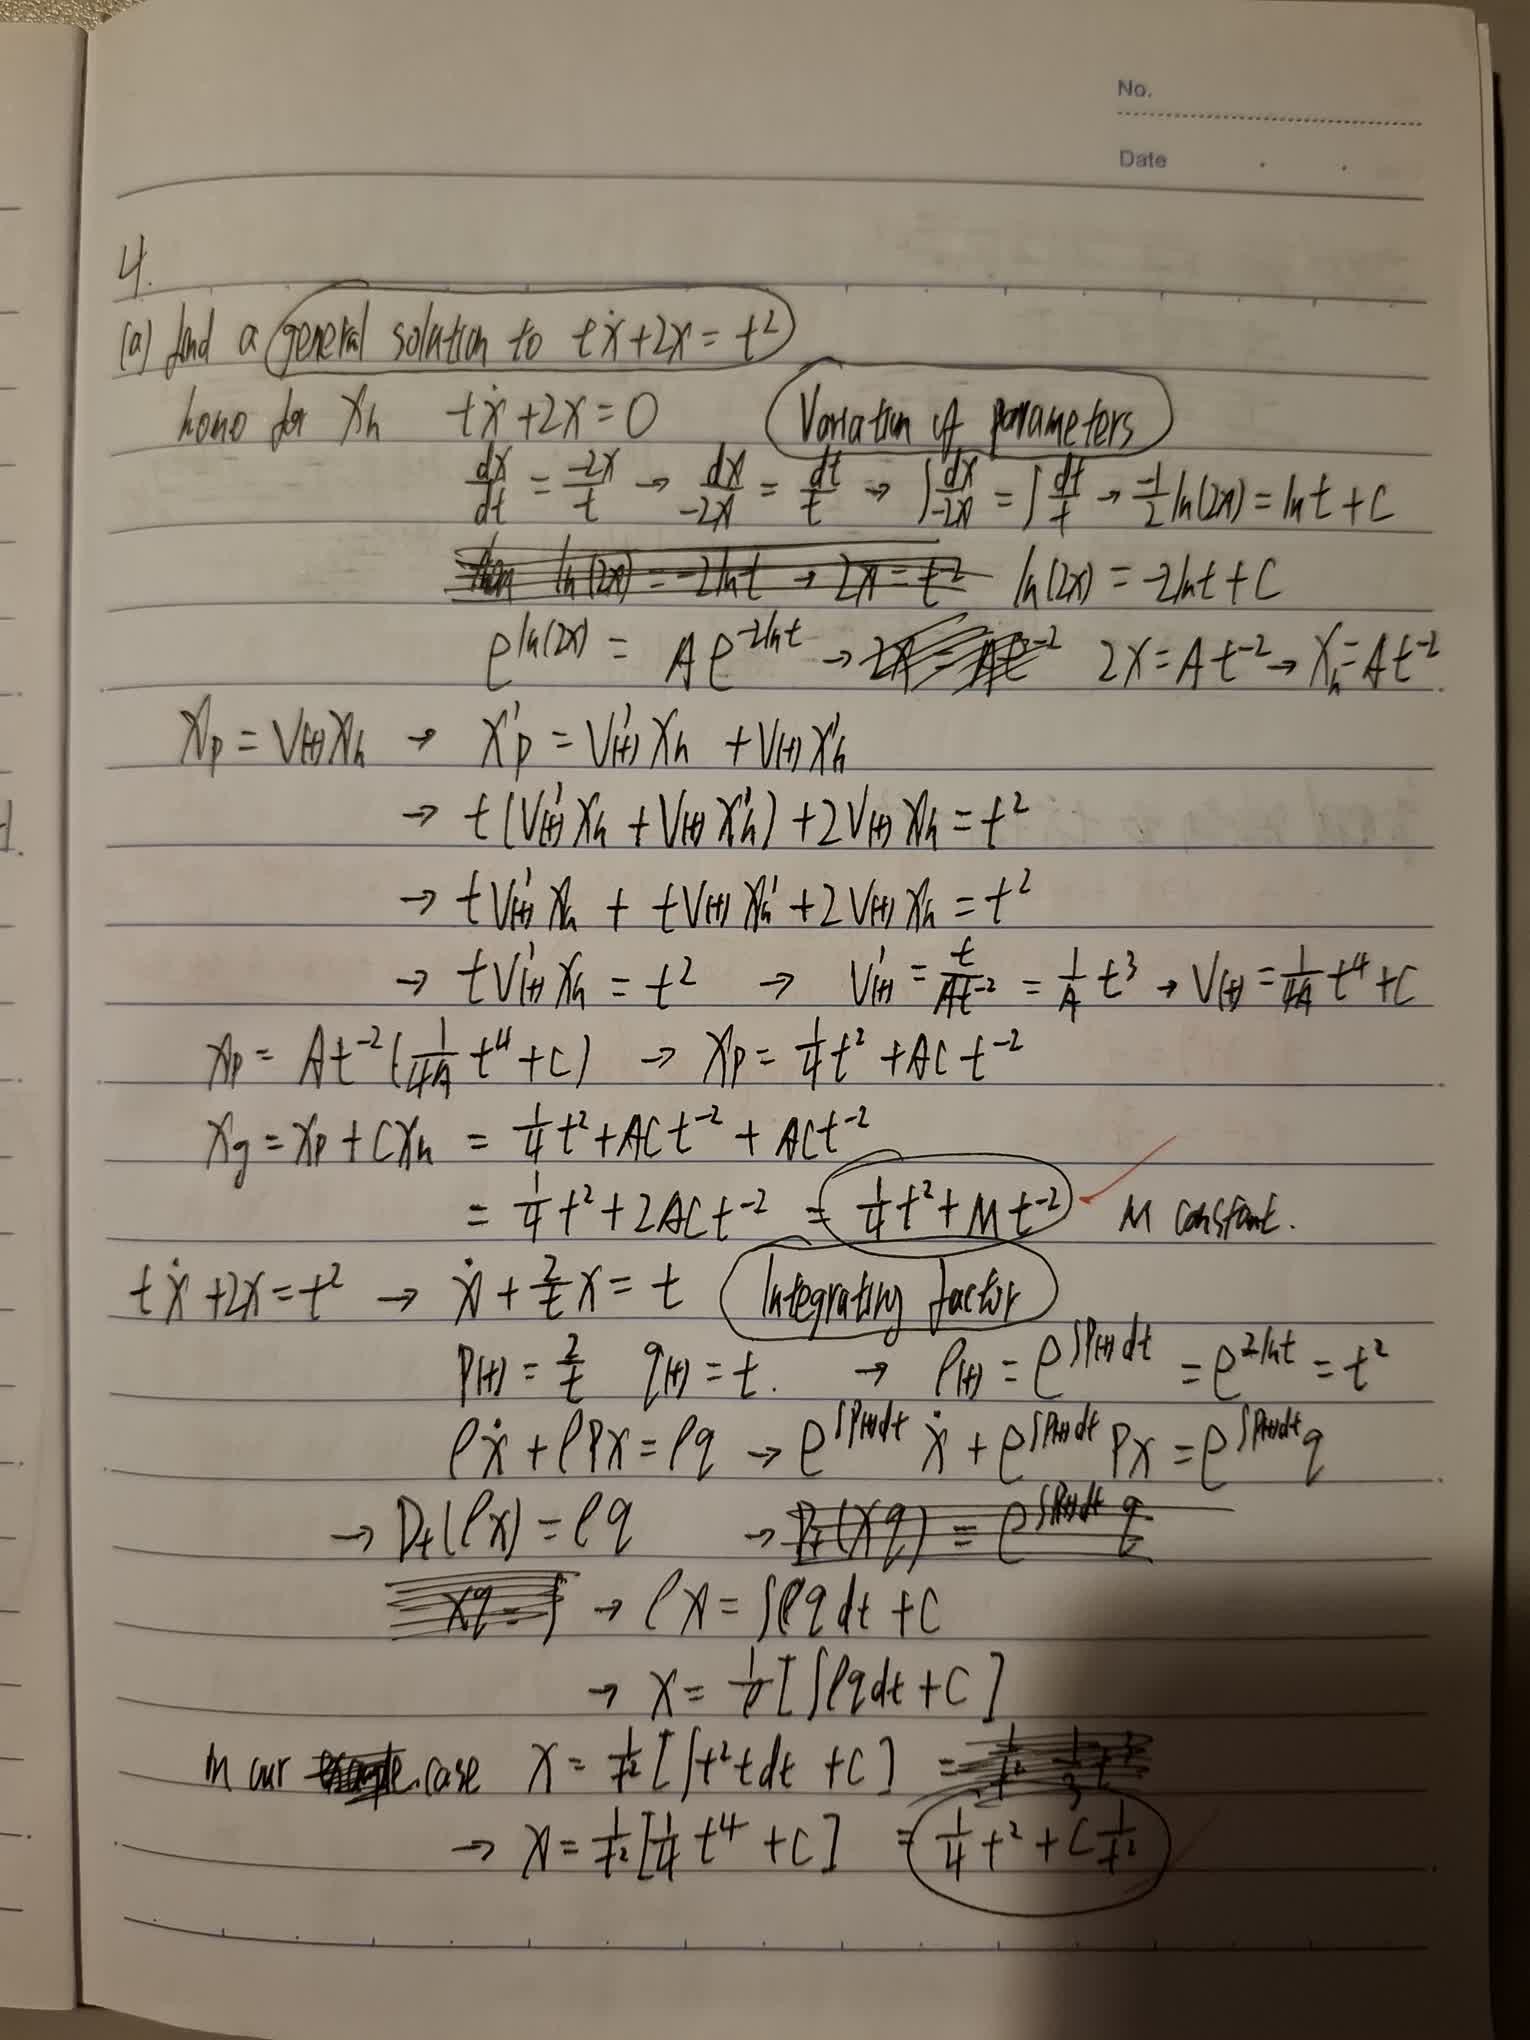 No.
Date
4.
(a) find a general solution to tẋ+2x = t²
homo for xₕ tẋ+2x=0 Variation of parameters
dx/dt = -2x/t → dx/-2x = dt/t → ∫dx/-2x = ∫dt/t → -1/2 ln(2x) = ln t + C
ln(2x) = -2ln t → 2x = t⁻² ln(2x) = -2ln t + C
e^ln(2x) = A e^-2ln t → 2x = At⁻² 2x = At⁻² → xₕ = At⁻²
xp = V(t)xₕ → x'p = V'(t)xₕ + V(t)x'ₕ
→ t(V'(t)xₕ + V(t)x'ₕ) + 2V(t)xₕ = t²
→ tV'(t)xₕ + tV(t)xₕ' + 2V(t)xₕ = t²
→ tV'(t)xₕ = t² → V'(t) = t/At⁻² = 1/A t³ → V(t) = 1/4A t⁴ + C
xp = At⁻²(1/4A t⁴ + C) → xp = 1/4 t² + ACt⁻²
xg = xp + Cxₕ = 1/4 t² + ACt⁻² + ACt⁻²
= 1/4 t² + 2ACt⁻² = 1/4 t² + Mt⁻² M constant.
tẋ+2x=t² → ẋ + 2/t x = t Integrating factor
P(t) = 2/t q(t) = t. → ρ(t) = e^∫P(t)dt = e^2ln t = t²
ρẋ + ρPx = ρq → e^∫P(t)dt ẋ + e^∫P(t)dt Px = e^∫P(t)dt q
→ Dt(ρx) = ρq → Dt(xq) = e^∫P(t)dt q
xq = ∫ → ρx = ∫ρq dt + C
→ x = 1/ρ [∫ρq dt + C]
in our example case x = 1/t² [∫t² t dt + C] = 1/t² 1/3 t³
→ x = 1/t² [1/4 t⁴ + C] = 1/4 t² + C 1/t²